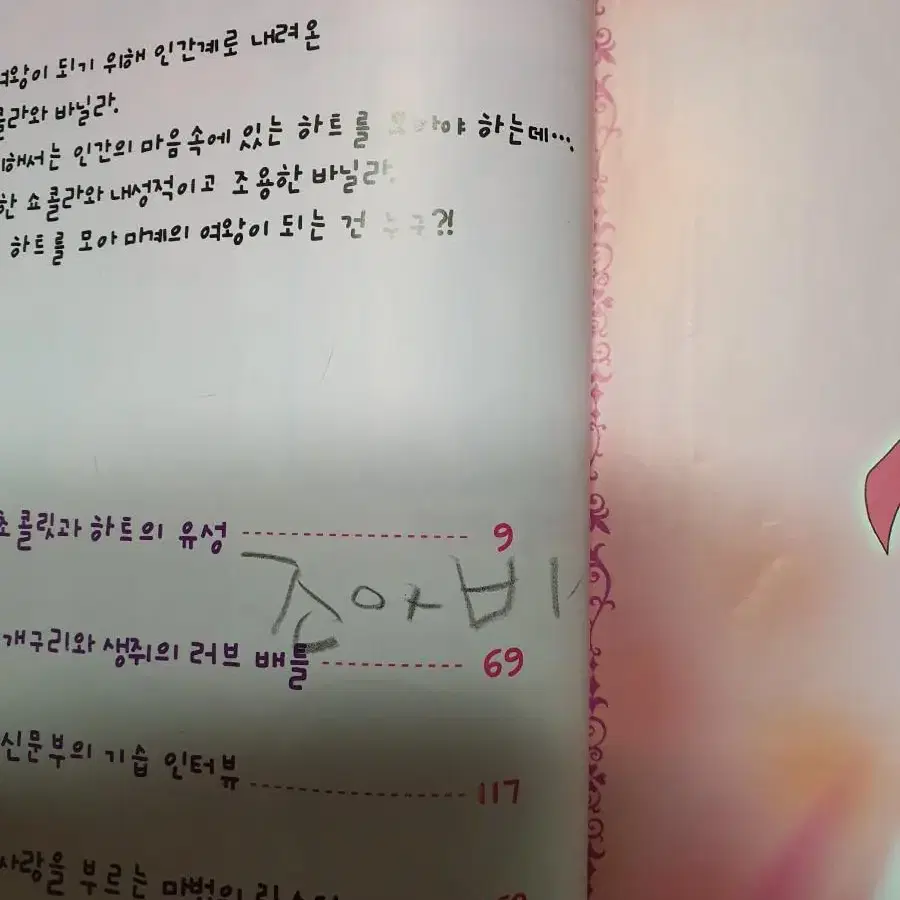 여왕이 되기 위해 인간계로 내려온
콜라와 바닐라.
위해서는 인간의 마음속에 있는 하트를 모아야 하는데…
한 쇼콜라와 내성적이고 조용한 바닐라.
하트를 모아 마계의 여왕이 되는 건 누구?!
초콜릿과 하트의 유성 9
개구리와 생쥐의 러브 배틀 69
신문부의 기습 인터뷰 117
사랑을 부르는 마법의